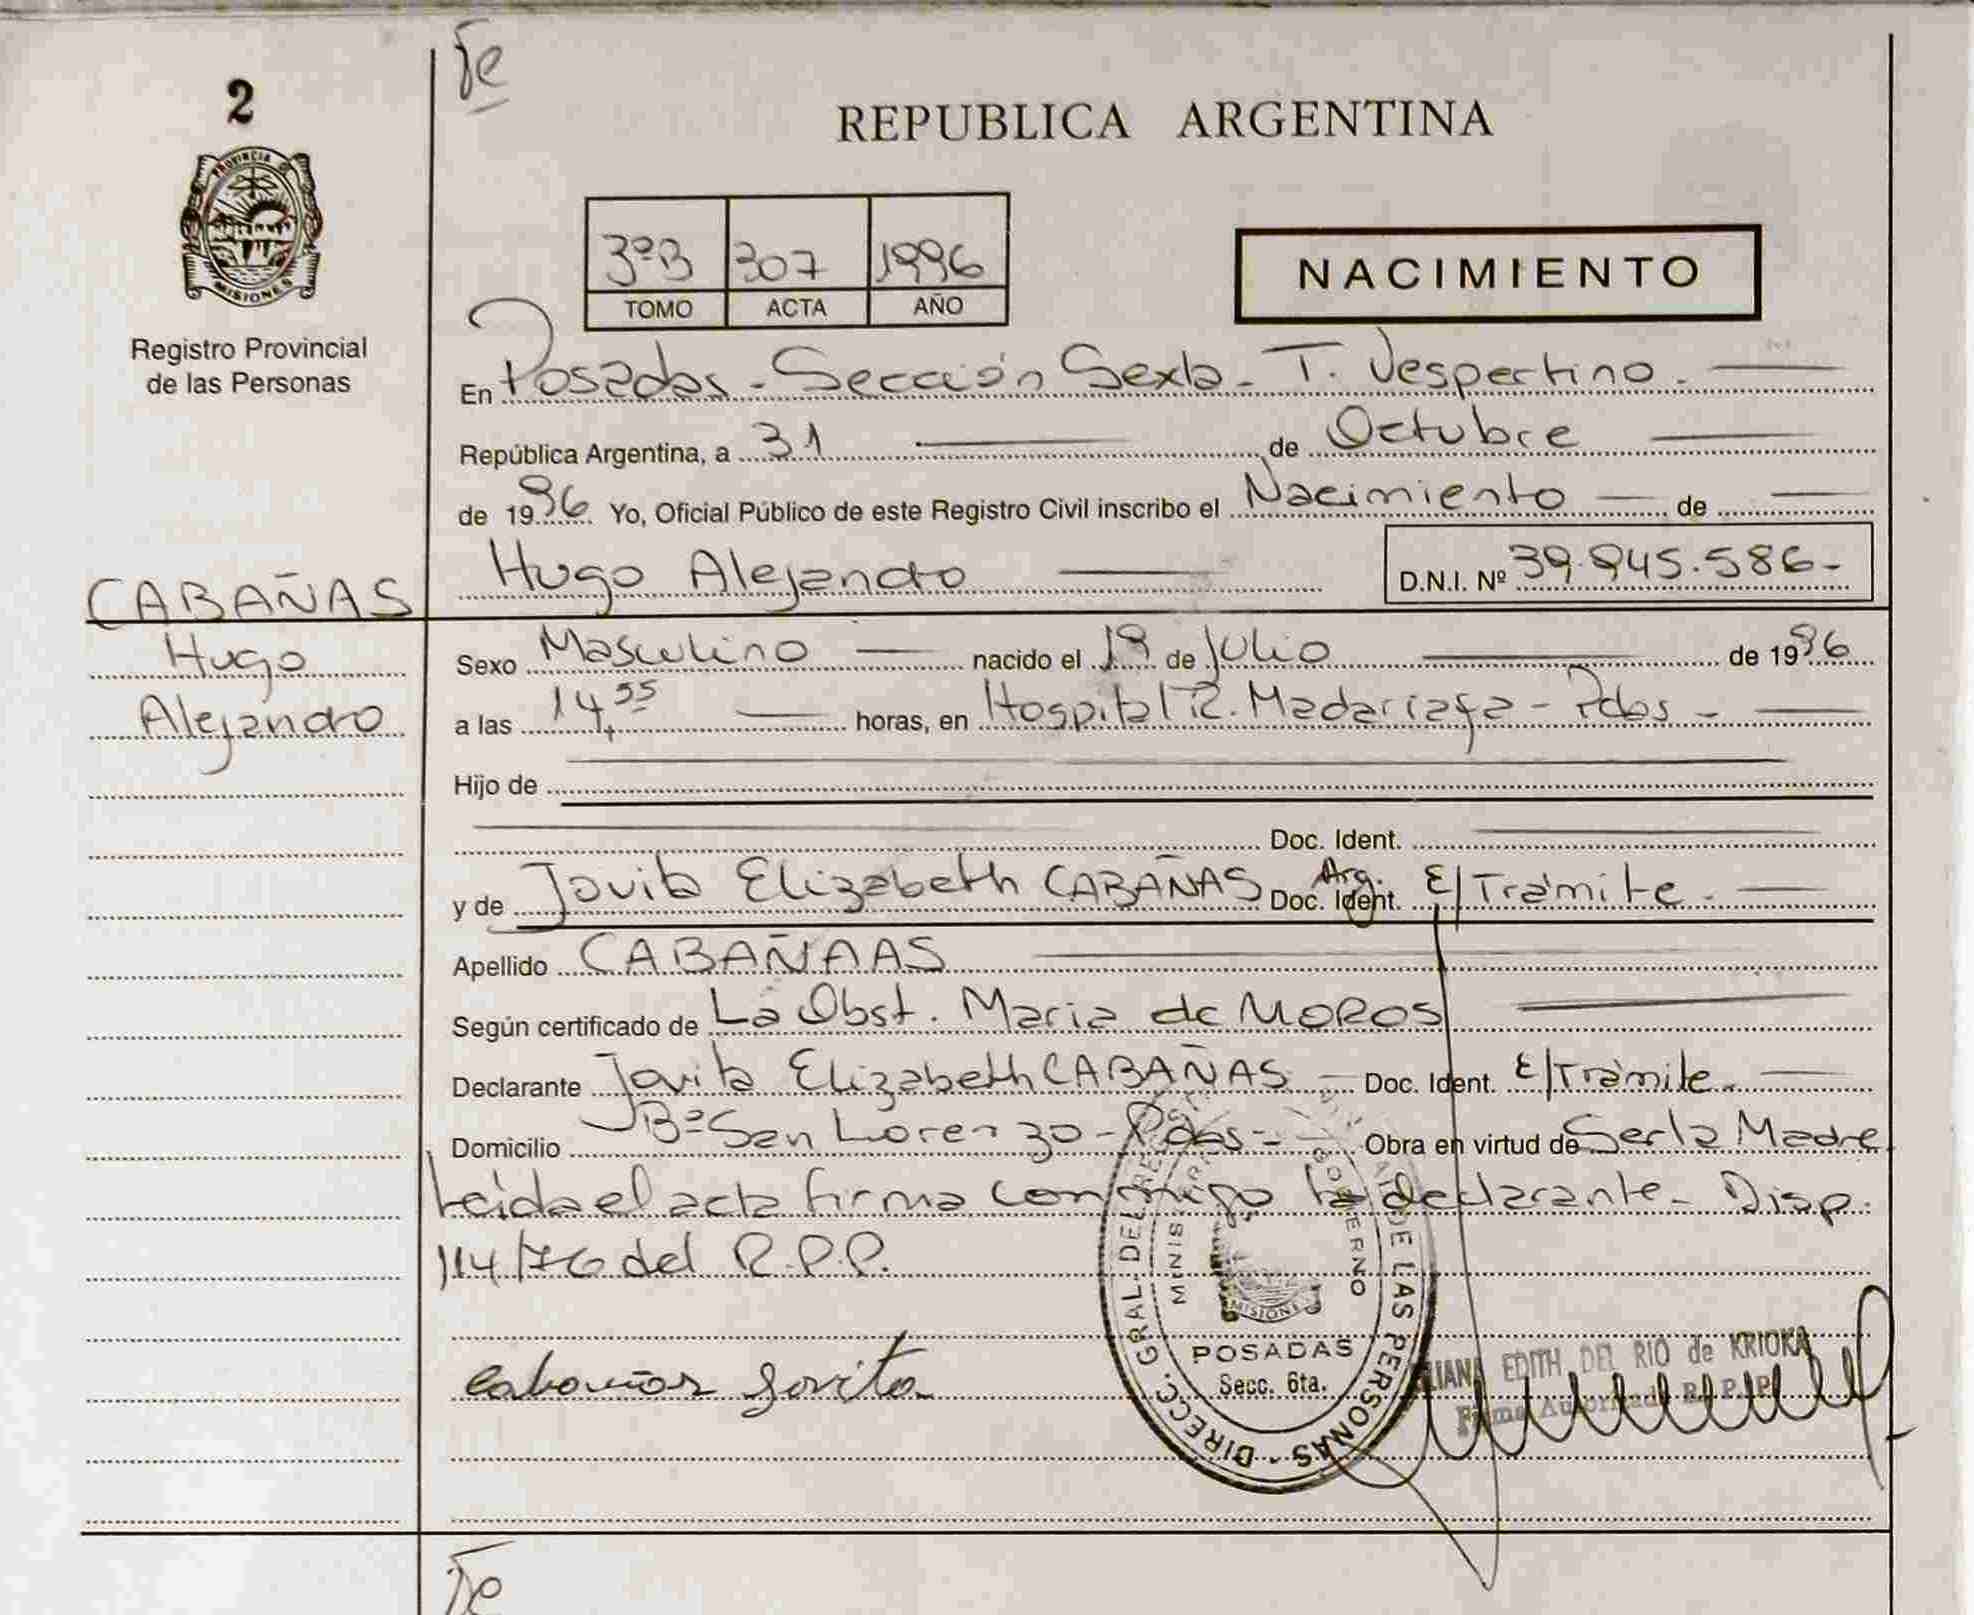 2
PROVINCIA DE
MISIONES
Registro Provincial
de las Personas
REPUBLICA ARGENTINA
3ºB 307 1996
TOMO ACTA AÑO
NACIMIENTO
En Posadas - Sección Sexta - T. Vespertino.
República Argentina, a 31 de Octubre
de 1996 Yo, Oficial Público de este Registro Civil inscribo el Nacimiento de
Hugo Alejandro D.N.I. Nº 39.945.586-
CABAÑAS
Hugo
Alejandro
Sexo Masculino nacido el 19 de Julio de 1996
a las 14,55 horas, en Hospital R. Madariaga - Pdas -
Hijo de
Doc. Ident.
y de Jovita Elizabeth CABAÑAS Arg. Doc. Ident. E/Trámite.
Apellido CABAÑAAS
Según certificado de La Obst. Maria de MOROS
Declarante Jovita Elizabeth CABAÑAS - Doc. Ident. E/Trámite.
Domicilio Bº San Lorenzo - Pdas - Obra en virtud de Ser la Madre
Leida el acta firma conmigo la declarante - Disp.
114/76 del R.P.P.
Cabañas Jovita
DIRECC. GRAL DEL RE DE LAS PERSONAS -
MINIS GOBIERNO
MISIONES
POSADAS
Secc. 6ta.
LIANA EDITH DEL RIO de KRIOKA
Firma Autorizada R.P.P.